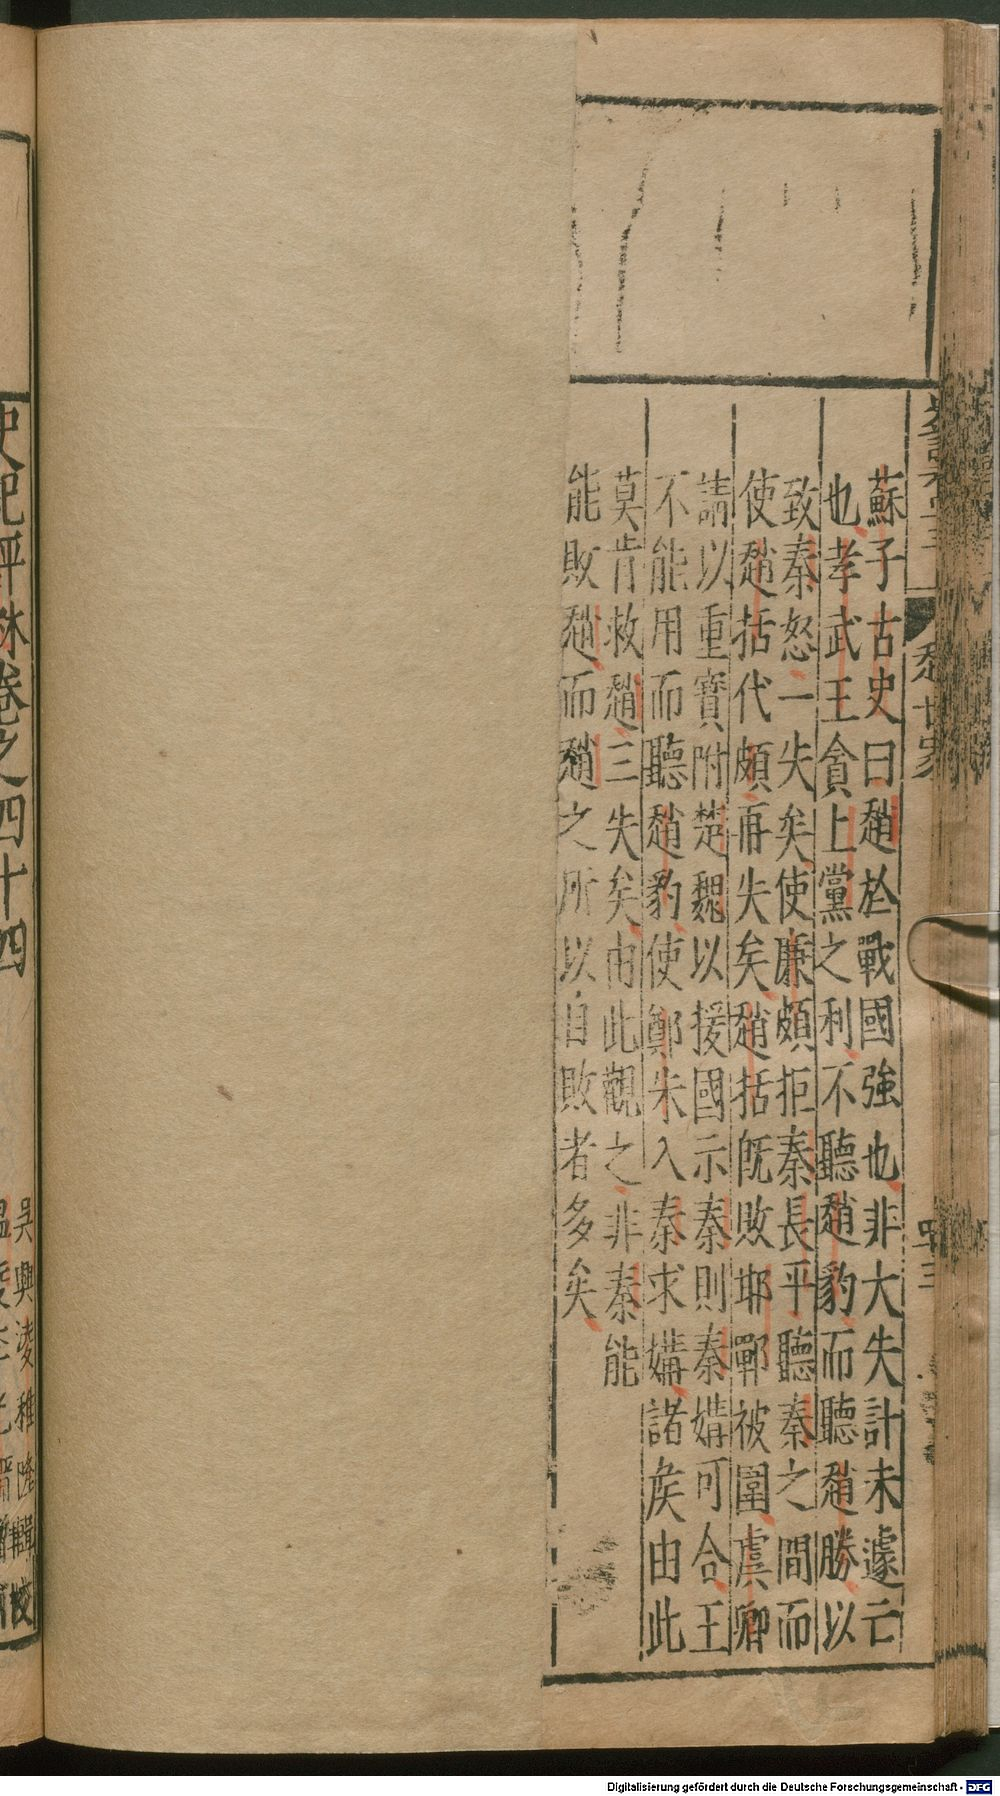 蘇子古史曰趙於戰國強也非大失計未遽亡
也孝武王貪上黨之利不聽趙豹而聽趙勝以
致秦怒一失矣使廉頗拒秦長平聽秦之間而
使趙括代頗再失矣趙括旣敗邯鄲被圍虞卿
請以重寶附楚魏以援國示秦則秦媾可合王
不能用而聽趙豹使鄭朱入秦求媾諸矦由此
莫肯救趙三失矣由此觀之非秦能
能敗趙而趙之所以自敗者多矣
史記評林卷之四十四
吳興淩稚隆輯校
Digitalisierung gefördert durch die Deutsche Forschungsgemeinschaft - DFG